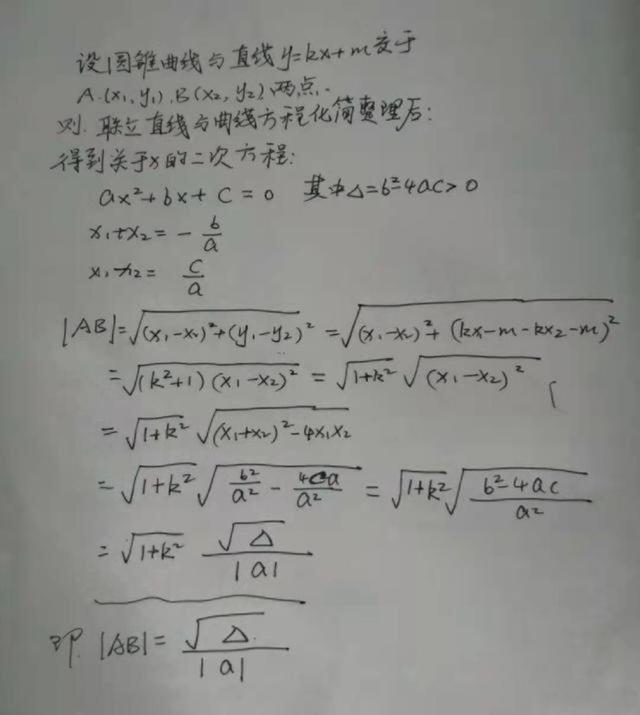 设圆锥曲线与直线y=kx+m交于
A(x₁,y₁),B(x₂,y₂)两点.
则.联立直线与曲线方程化简整理后:
得到关于x的二次方程:
ax²+bx+c=0 其中△=b²-4ac>0
x₁+x₂=-b/a
x₁·x₂=c/a
|AB|=√((x₁-x₂)²+(y₁-y₂)²)=√((x₁-x₂)²+(kx-m-kx₂-m)²)
=√((k²+1)(x₁-x₂)²)=√(1+k²)√((x₁-x₂)²)
=√(1+k²)√((x₁+x₂)²-4x₁x₂)
=√(1+k²)√(b²/a²-4ca/a²)=√(1+k²)√((b²-4ac)/a²)
=√(1+k²) √△/|a|
即.|AB|=√△/|a|